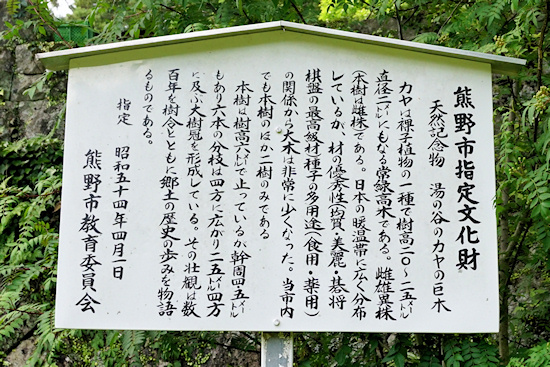 熊野市指定文化財
天然記念物　湯の谷のカヤの巨木
カヤは裸子植物の一種で樹高二〇～二五㍍
直径二㍍にもなる常緑高木である。雌雄異株
（本樹は雌株）である。日本の暖温帯に広く分布
しているが、材の優秀性（均質・美麗・碁将
棋盤の最高級材）種子の多用途（食用・薬用）
の関係から大木は非常に少くなった。当市内
でも本樹のほか二樹のみである
本樹は樹高六㍍で止っているが幹周四五㍍
もあり六本の分枝は四方に広がり二五㍍四方
に及ぶ大樹冠を形成している。その壮観は数
百年を樹令とともに郷土の歴史の歩みを物語
るものである。
指定　昭和五十四年四月一日
熊野市教育委員会